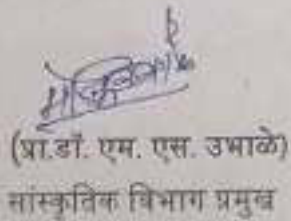 (प्रा.डॉ. एम. एस. उभाळे)
सांस्कृतिक विभाग प्रमुख